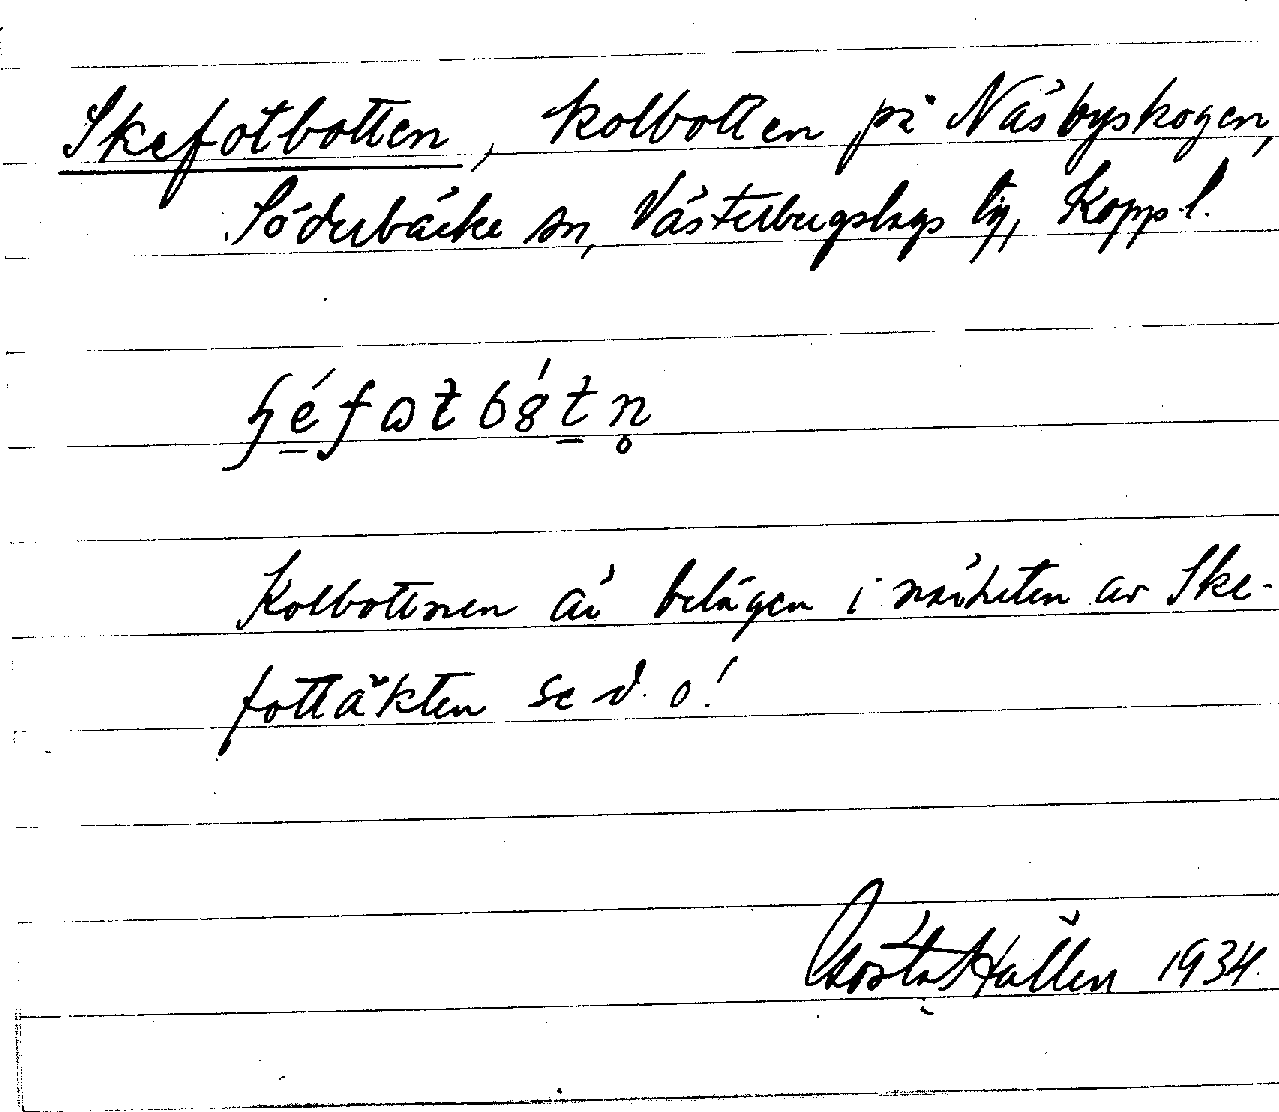 Skefotbotten, kolbotten på Näsbyskogen,
Söderbärke sn, Västerbergslags tg, Kopp l.
Kolbottnen är belägen i närheten av Ske-
fottäkten se d. o!
Gösta Hallén 1934.